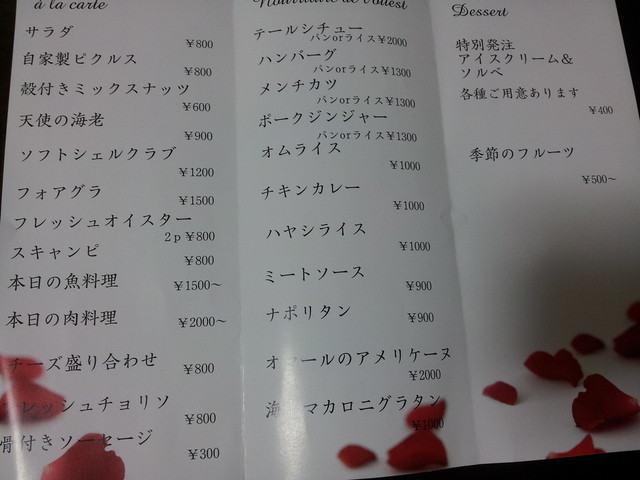 à la carte
サラダ
¥800
自家製ピクルス
¥800
殻付きミックスナッツ
¥600
天使の海老
¥900
ソフトシェルクラブ
¥1200
フォアグラ
¥1500
フレッシュオイスター
2p ¥800
スキャンピ
¥800
本日の魚料理
¥1500～
本日の肉料理
¥2000～
チーズ盛り合わせ
¥800
レッシュチョリソ
¥800
骨付きソーセージ
¥300
Nourriture de l'ouest
テールシチュー
パンorライス¥2000
ハンバーグ
パンorライス¥1300
メンチカツ
パンorライス¥1300
ポークジンジャー
パンorライス¥1300
オムライス
¥1000
チキンカレー
¥1000
ハヤシライス
¥1000
ミートソース
¥900
ナポリタン
¥900
オマールのアメリケーヌ
¥2000
海 マカロニグラタン
¥1000
Dessert
特別発注
アイスクリーム&
ソルベ
各種ご用意あります
¥400
季節のフルーツ
¥500～